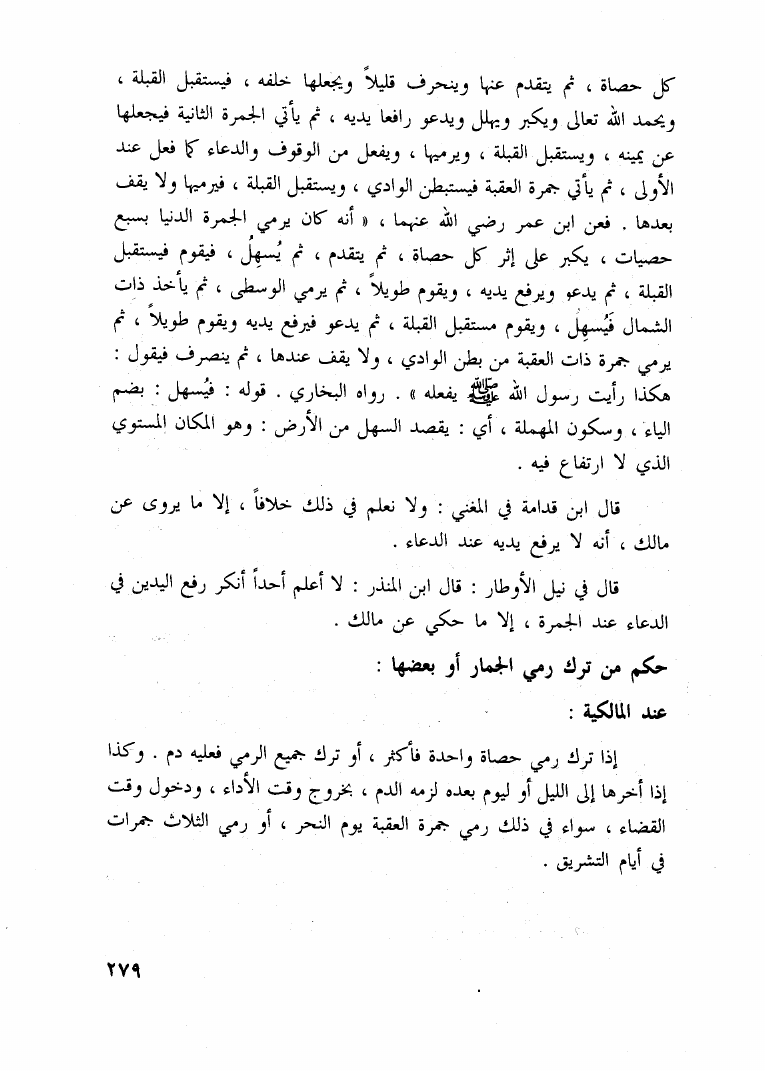 كل حصاة ، ثم يتقدم عنها وينحرف قليلاً ويجعلها خلفه ، فيستقبل القبلة ،
ويحمد الله تعالى ويكبر ويهلل ويدعو رافعا يديه ، ثم يأتي الجمرة الثانية فيجعلها
عن يمينه ، ويستقبل القبلة ، ويرميها ، ويفعل من الوقوف والدعاء كما فعل عند
الأولى ، ثم يأتي جمرة العقبة فيستبطن الوادي ، ويستقبل القبلة ، فيرميها ولا يقف
بعدها . فعن ابن عمر رضي الله عنهما ، « أنه كان يرمي الجمرة الدنيا بسبع
حصيات ، يكبر على إثر كل حصاة ، ثم يتقدم ، ثم يُسهِلُ ، فيقوم فيستقبل
القبلة ، ثم يدعو ويرفع يديه ، ويقوم طويلاً ، ثم يرمي الوسطى ، ثم يأخذ ذات
الشمال فَيُسهِلُ ، ويقوم مستقبل القبلة ، ثم يدعو فيرفع يديه ويقوم طويلاً ، ثم
يرمي جمرة ذات العقبة من بطن الوادي ، ولا يقف عندها ، ثم ينصرف فيقول :
هكذا رأيت رسول الله ﷺ يفعله » . رواه البخاري . قوله : فيُسهل : بضم
الياء ، وسكون المهملة ، أي : يقصد السهل من الأرض : وهو المكان المستوي
الذي لا ارتفاع فيه .
قال ابن قدامة في المغني : ولا نعلم في ذلك خلافاً ، إلا ما يروى عن
مالك ، أنه لا يرفع يديه عند الدعاء .
قال في نيل الأوطار : قال ابن المنذر : لا أعلم أحداً أنكر رفع اليدين في
الدعاء عند الجمرة ، إلا ما حكي عن مالك .
حكم من ترك رمي الجمار أو بعضها :
عند المالكية :
إذا ترك رمي حصاة واحدة فأكثر ، أو ترك جميع الرمي فعليه دم . وكذا
إذا أخرها إلى الليل أو ليوم بعده لزمه الدم ، بخروج وقت الأداء ، ودخول وقت
القضاء ، سواء في ذلك رمي جمرة العقبة يوم النحر ، أو رمي الثلاث جمرات
في أيام التشريق .
٢٧٩